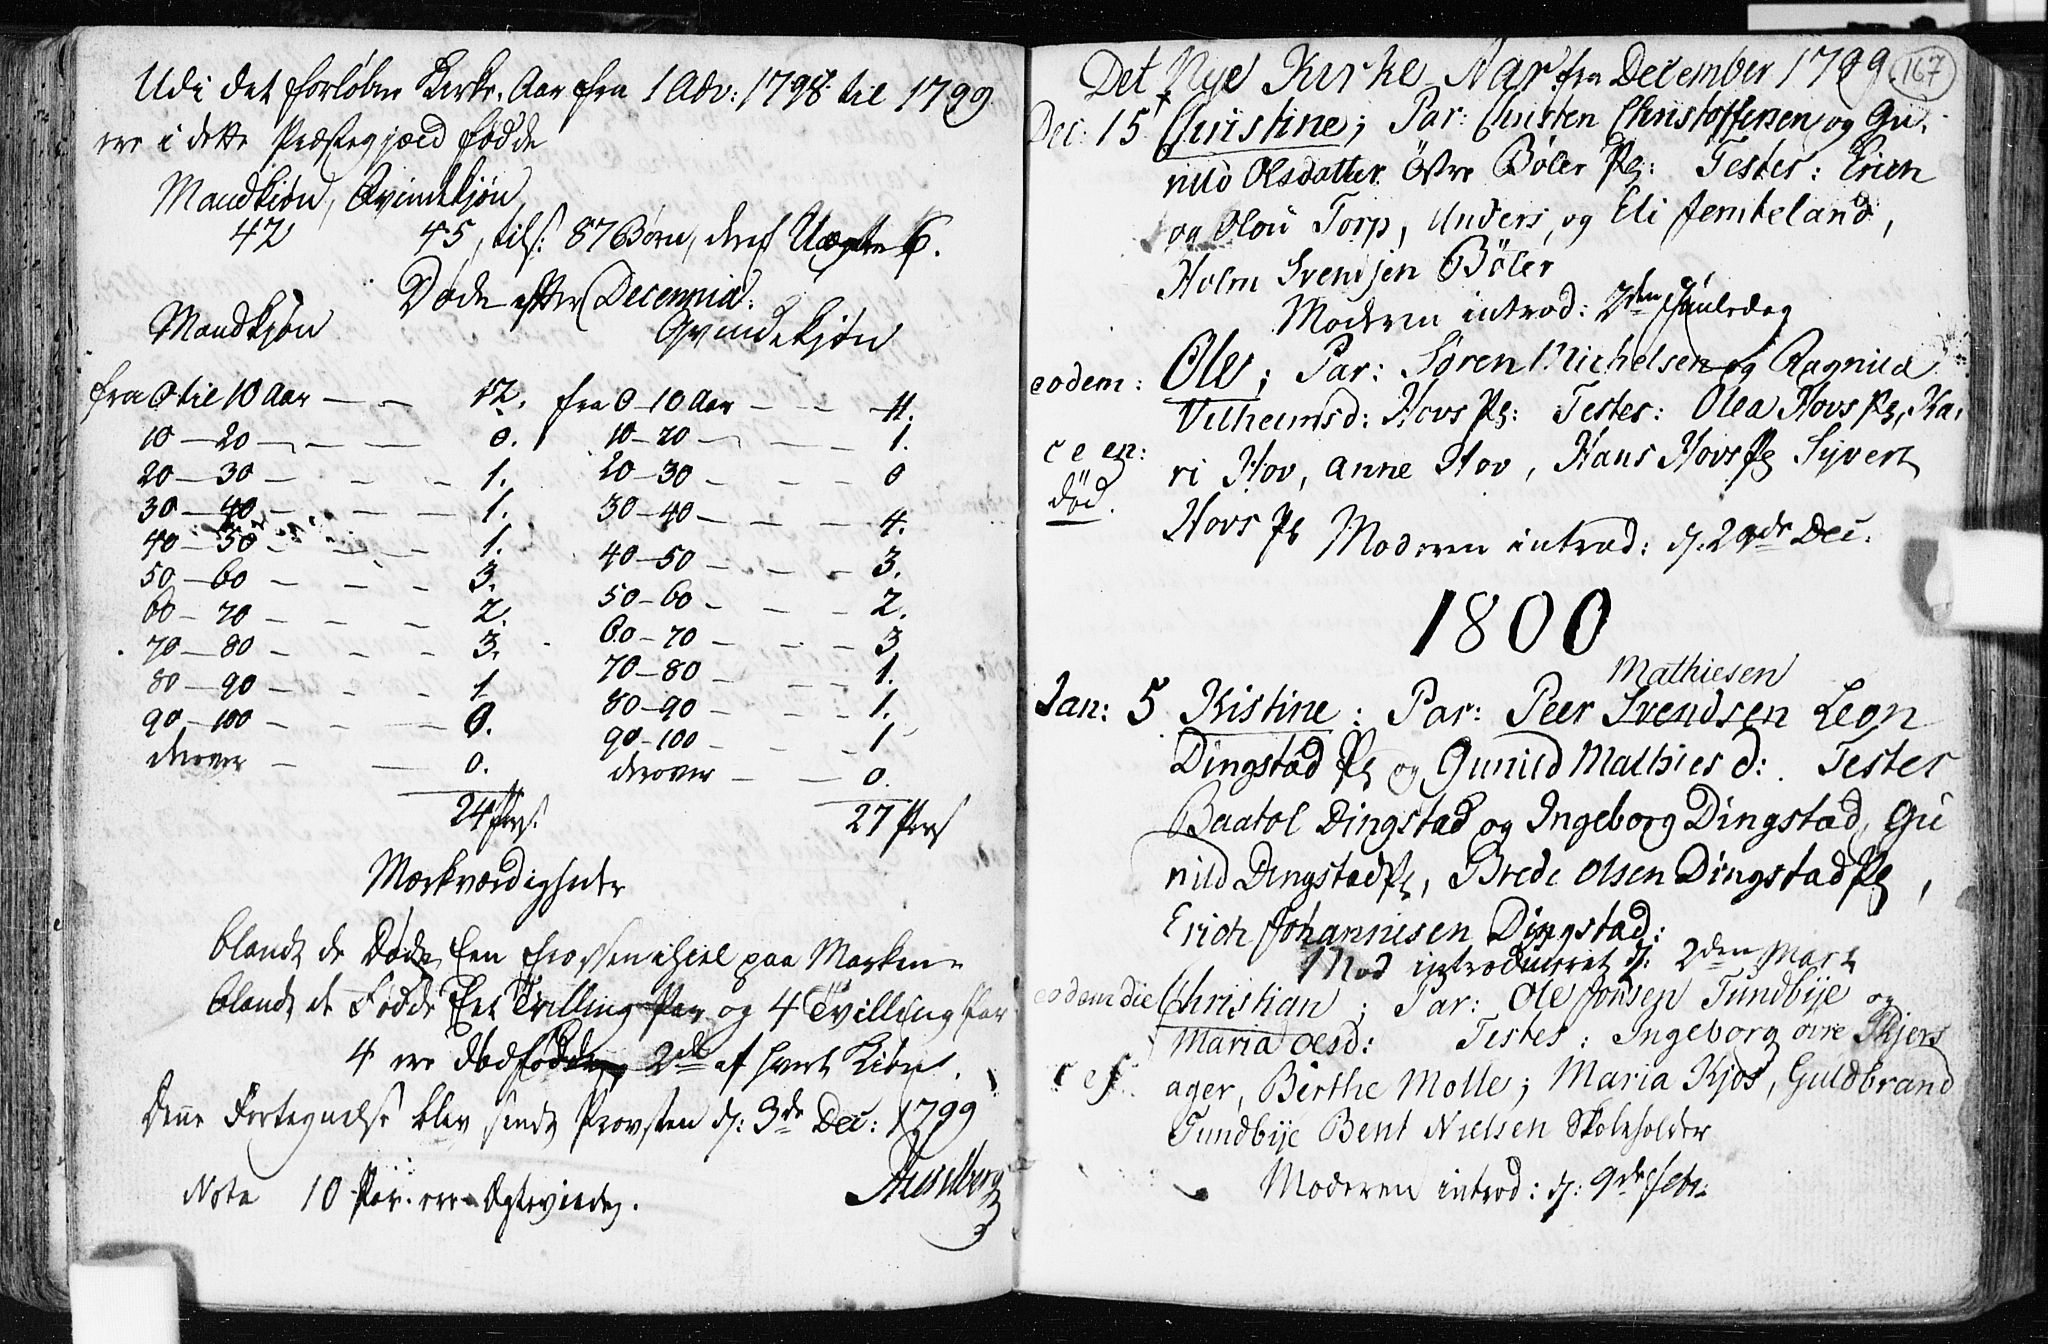 Udi det forløbne Kirke-Aar fra 1 Adv: 1798 til 1799
ere i dette Præstegjæld fødde
Mandkiøn, Qvindekjøn
42 45, tils: 87 Børn, deraf Uægte 6.
Døde efter Decennia:
Mandkjøn Qvindekjøn
fra 0 til 10 Aar — — 12. fra 0-10 Aar — — 11.
10—20 — — — 0. 10-20 — — — 1.
20—30 — — — 1. 20-30 — — — 0
30—40 — — — 1. 30-40 — — — 4.
40—50 — — — 1. 40-50 — — — 3.
50—60 — — — 3. 50-60 — — — 2.
60—70 — — — 2. 60-70 — — — 3
70—80 — — — 3. 70-80 — — — 1.
80—90 — — — 1 80-90 — — — 1.
90—100 — — — 0. 90-100 — — — 1
derover — — 0. derover — — 0.
24 Pers. 27 Pers
Mærkværdigheder
blandt de Døde Een frossen ihiel paa Marken
blandt de Fødde Eet Trilling Par og 4 Tvilling Par
4 ere dødfødde, 2de af hvert Kiøn.
Denne Fortegnelse blev sendt Provsten d: 3de Dec: 1799
Nota 10 Par ere Ægteviede.
167
Det Nye Kirke Aar fra December 1799
Dec: 15 Christine; Par: Christen Christoffersen og Gu-
nild Olsdatter Östre Böler Pl: Testes: Erich
og Olou Torp, Anders, og Eli Jembeland,
Holm Svensen Böler
Moderen introd: 2den Juuledag
eodem: Ole; Par: Sören Michelsen og Ragnild
Vilhelmsd: Hovs Pl: Testes: Olea Hovs Pl, Ka-
ri Hov, Anne Hov, Hans Hovs Pl Syvert
död.
Hovs Pl Moderen introd: d: 29de Dec.
1800
Mathiesen
Jan: 5 Kistine: Par: Peer Svendsen Leon
Dingstad Pl og Gunild Mathiesd: Testes
Baatol Dingstad og Ingeborg Dingstad, Gu
nild Dingstad Pl, Brede Olsen Dingstad Pl,
Erich Johannesen Dingstad:
Mod introduceret d: 2den Mart
eodem die Christian; Par: Ole Jonsen Tundbye og
Maria Olsd: Testes: Ingeborg övre Skjers
ager, Birthe Molle; Maria Kjos, Guldbrand
Tundbye Bent Nielsen Skoleholder
Moderen introd: d: 9de Febr: